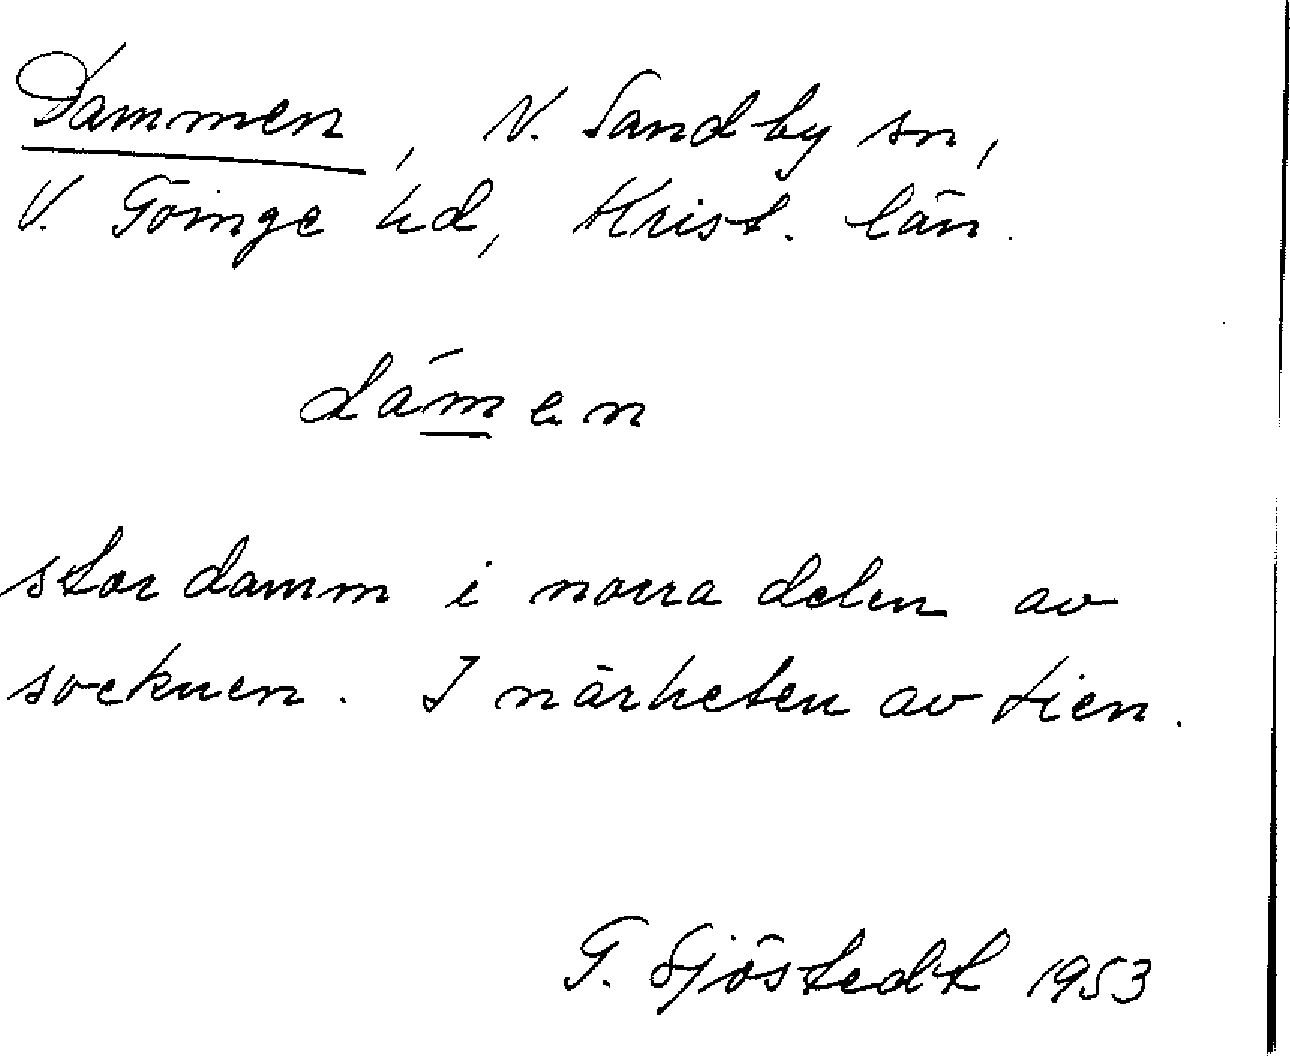 Dammen, N. Sandby sn,
V. Göinge hd, Krist. län.
dámen
stor damm i norra delen av
socknen. I närheten av tien.
G. Sjöstedt 1953